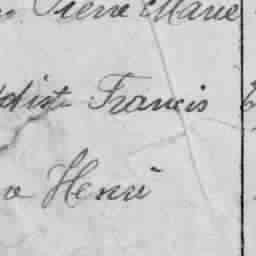 Pierre Marie
diste Francis
a Henri